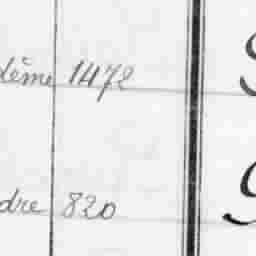 dème 1472
dre 820